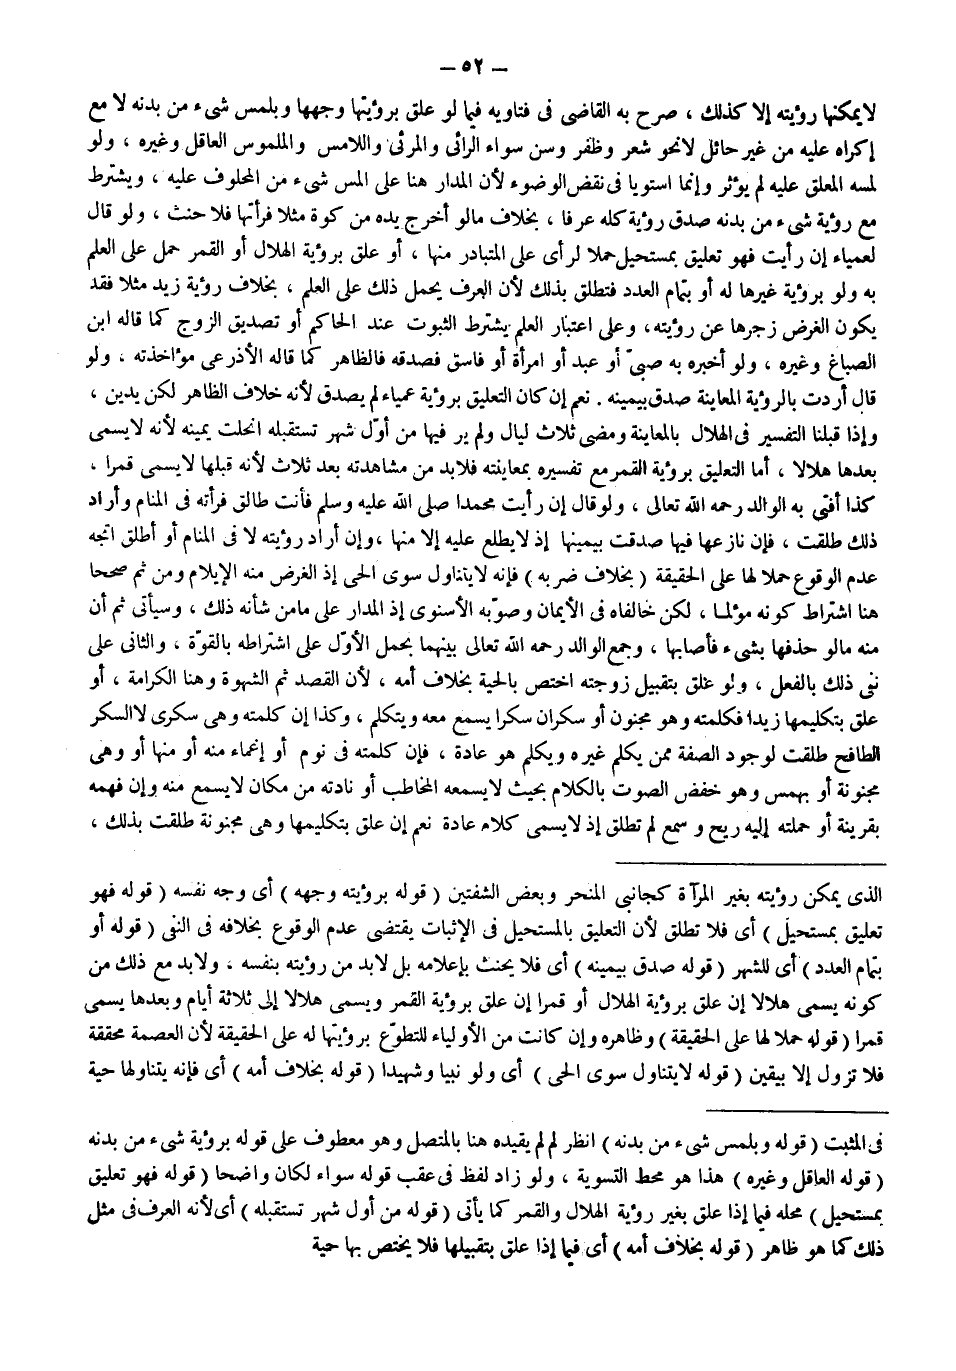 — ٥٢ —
لايمكنها رؤيته إلا كذلك ، صرح به القاضى فى فتاويه فيما لو علق برؤيتها وجهها وبلمس شىء من بدنه لا مع
إكراه عليه من غير حائل لانحو شعر وظفر وسن سواء الرائى والمرئى واللامس والملموس العاقل وغيره ، ولو
لمسه المعلق عليه لم يؤثر وإنما استويا فى نقض الوضوء لأن المدار هنا على المس شىء من المحلوف عليه ، ويشترط
مع رؤية شىء من بدنه صدق رؤية كله عرفا ، بخلاف مالو أخرج يده من كوة مثلا فرأتها فلا حنث ، ولو قال
لعمياء إن رأيت فهو تعليق بمستحيل حملا لرأى على المتبادر منها ، أو علق برؤية الهلال أو القمر حمل على العلم
به ولو برؤية غيرها له أو بتمام العدد فتطلق بذلك لأن العرف يحمل ذلك على العلم ، بخلاف رؤية زيد مثلا فقد
يكون الغرض زجرها عن رؤيته، وعلى اعتبار العلم يشترط الثبوت عند الحاكم أو تصديق الزوج كما قاله ابن
الصباغ وغيره ، ولو أخبره به صبىّ أو عبد أو امرأة أو فاسق فصدقه فالظاهر كما قاله الأذرعى مؤاخذته ، ولو
قال أردت بالرؤية المعاينة صدق بيمينه . نعم إن كان التعليق برؤية عمياء لم يصدق لأنه خلاف الظاهر لكن يدين ،
وإذا قبلنا التفسير فى الهلال بالمعاينة ومضى ثلاث ليال ولم ير فيها من أوّل شهر تستقبله انحلت يمينه لأنه لايسمى
بعدها هلالا ، أما التعليق برؤية القمر مع تفسيره بمعاينته فلابد من مشاهدته بعد ثلاث لأنه قبلها لايسمى قمرا ،
كذا أفتى به الوالد رحمه الله تعالى ، ولوقال إن رأيت محمدا صلى الله عليه وسلم فأنت طالق فرأته فى المنام وأراد
ذلك طلقت ، فإن نازعها فيها صدقت بيمينها إذ لايطلع عليه إلا منها ،وإن أراد رؤيته لا فى المنام أو أطلق اتجه
عدم الوقوع حملا لها على الحقيقة ( بخلاف ضربه ) فإنه لايتناول سوى الحى إذ الغرض منه الإيلام ومن ثم صححا
هنا اشتراط كونه مؤلمـا ، لكن خالفاه فى الأيمان وصوّبه الأسنوى إذ المدار على مامن شأنه ذلك ، وسيأتى ثم أن
منه مالو حذفها بشىء فأصابها ، وجمع الوالد رحمه الله تعالى بينهما بحمل الأوّل على اشتراطه بالقوّة ، والثانى على
نفى ذلك بالفعل ، ولو علق بتقبيل زوجته اختص بالحية بخلاف أمه ، لأن القصد ثم الشهوة وهنا الكرامة ، أو
علق بتكليمها زيدا فكلمته وهو مجنون أو سكران سكرا يسمع معه ويتكلم ، وكذا إن كلمته وهى سكرى لاالسكر
الطافح طلقت لوجود الصفة ممن يكلم غيره ويكلم هو عادة ، فإن كلمته فى نوم أو إغماء منه أو منها أو وهى
مجنونة أو بهمس وهو خفض الصوت بالكلام بحيث لايسمعه المخاطب أو نادته من مكان لايسمع منه وإن فهمه
بقرينة أو حملته إليه ريح و سمع لم تطلق إذ لايسمى كلام عادة نعم إن علق بتكليمها وهى مجنونة طلقت بذلك ،
الذى يمكن رؤيته بغير المرآة كجانبى المنحر وبعض الشفتين ( قوله برؤيته وجهه ) أى وجه نفسه ( قوله فهو
تعليق بمستحيل ) أى فلا تطلق لأن التعليق بالمستحيل فى الإثبات يقتضى عدم الوقوع بخلافه فى النفى ( قوله أو
بتمام العدد ) أى للشهر ( قوله صدق بيمينه ) أى فلا يحنث بإعلامه بل لابد من رؤيته بنفسه ، ولابد مع ذلك من
كونه يسمى هلالا إن علق برؤية الهلال أو قمرا إن علق برؤية القمر ويسمى هلالا إلى ثلاثة أيام وبعدها يسمى
قمرا ( قوله حملا لها على الحقيقة ) وظاهره وإن كانت من الأولياء للتطوّع برؤيتها له على الحقيقة لأن العصمة محققة
فلا تزول إلا بيقين ( قوله لايتناول سوى الحى ) أى ولو نبيا وشهيدا ( قوله بخلاف أمه ) أى فإنه يتناولها حية
فى المثبت ( قوله وبلمس شىء من بدنه ) انظر لم لم يقيده هنا بالمتصل وهو معطوف على قوله برؤية شىء من بدنه
( قوله العاقل وغيره ) هذا هو محط التسوية ، ولو زاد لفظ فى عقب قوله سواء لكان واضحا ( قوله فهو تعليق
بمستحيل ) محله فيما إذا علق بغير رؤية الهلال والقمر كما يأتى ( قوله من أول شهر تستقبله ) أى لأنه العرف فى مثل
ذلك كما هو ظاهر ( قوله بخلاف أمه ) أى فيما إذا علق بتقبيلها فلا يختص بها حية